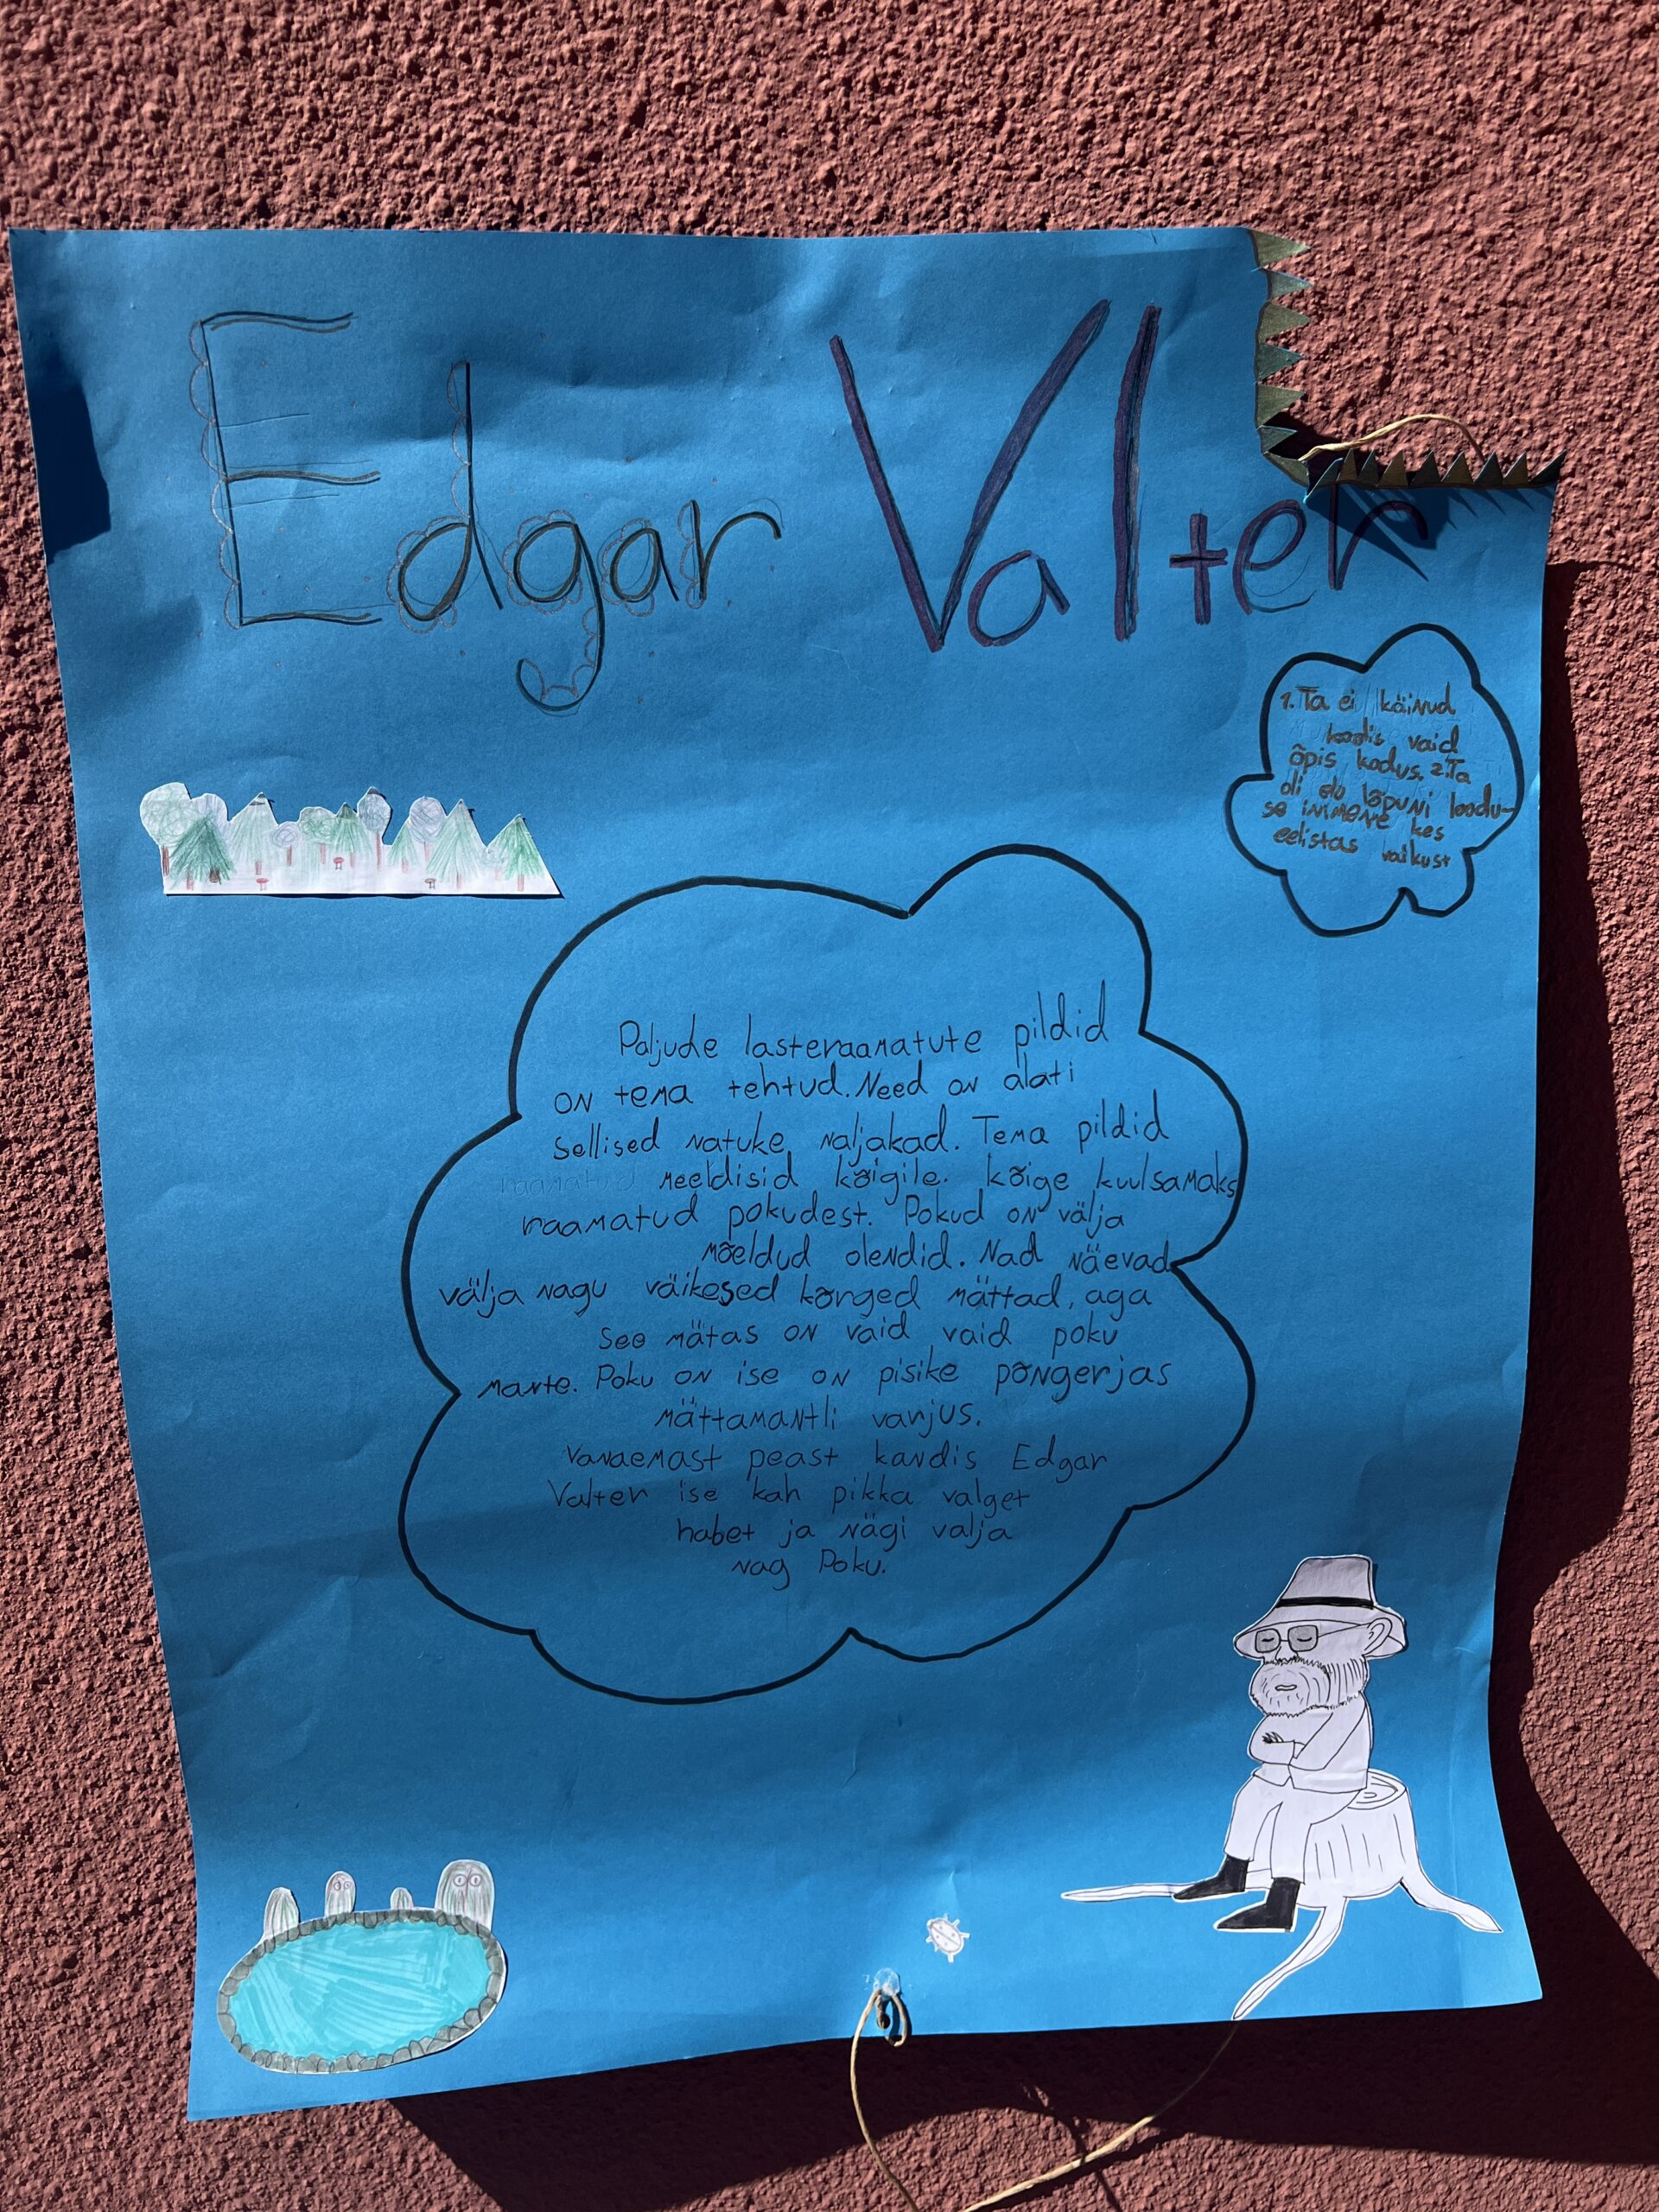 Edgar Valter
1. Ta ei käinud
koolis vaid
õpis kodus. 2. Ta
oli elu lõpuni loodu-
se inimene kes
eelistas vaikust
Paljude lasteraamatute pildid
on tema tehtud. Need on alati
sellised natuke naljakad. Tema pildid
raamatud meeldisid kõigile. kõige kuulsamaks
raamatud pokudest. Pokud on välja
mõeldud olendid. Nad näevad
välja nagu väikesed kõrged mättad, aga
see mätas on vaid vaid poku
mante. Poku on ise on pisike põngerjas
mättamantli varjus.
Vanaemast peast kandis Edgar
Valter ise kah pikka valget
habet ja nägi valja
nag Poku.